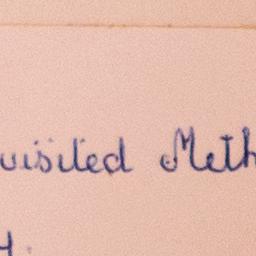 uisited Meth